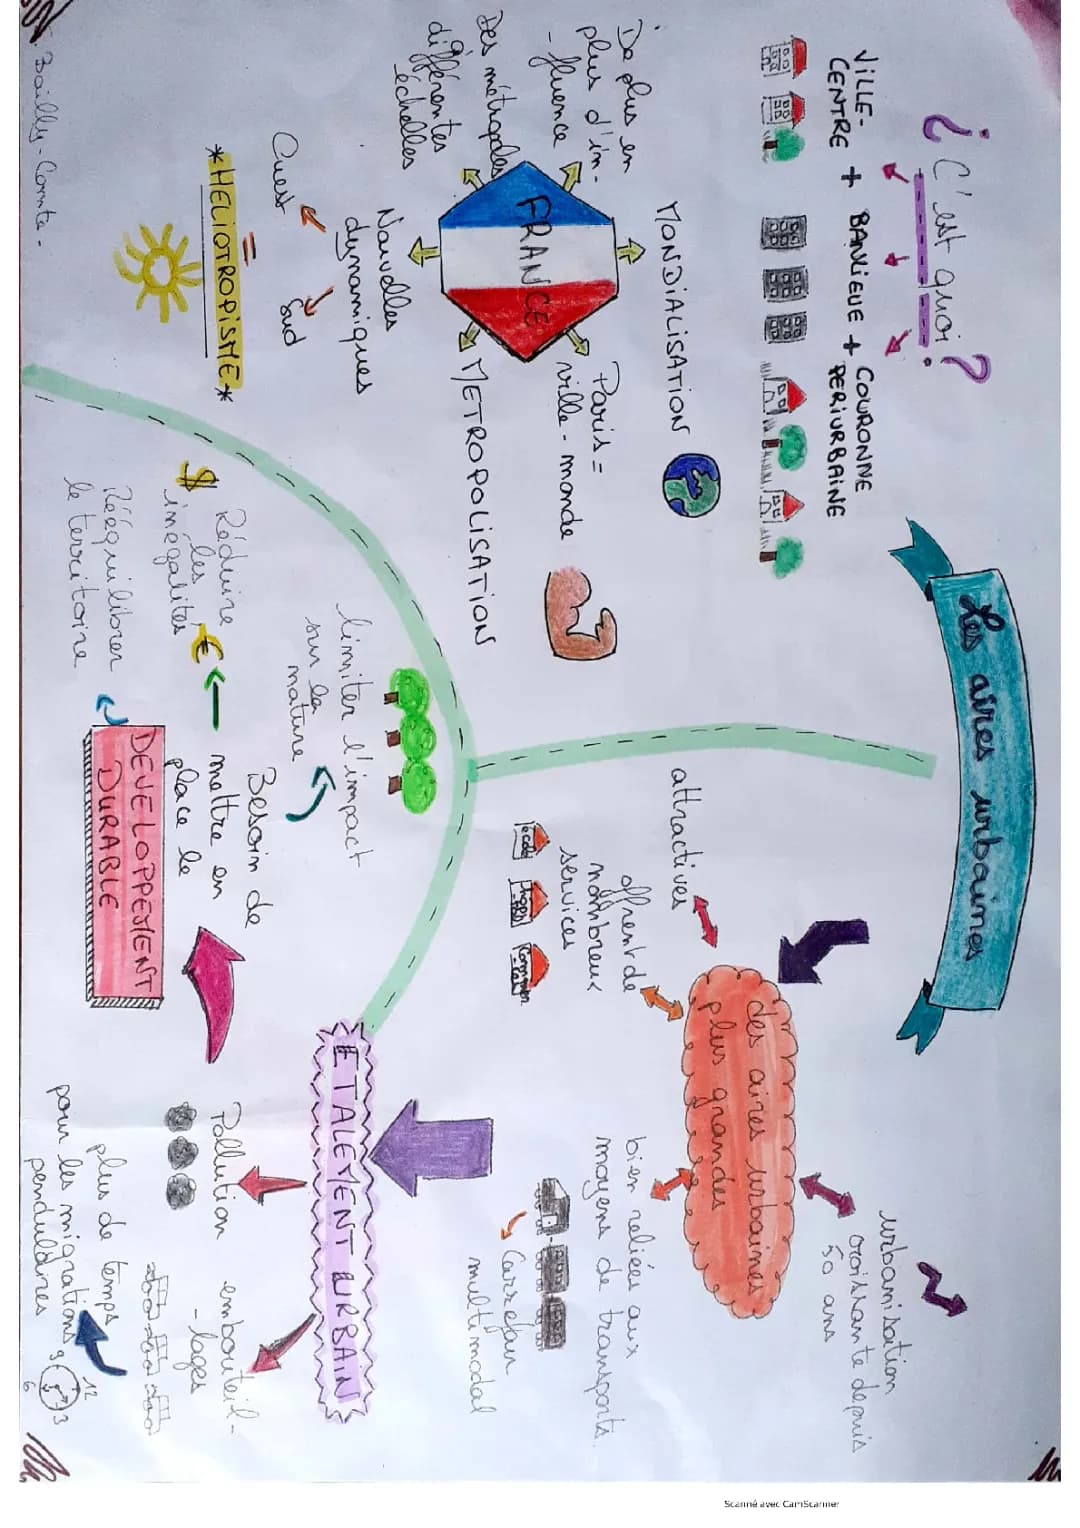 Les aires urbaines
¿ C'est quoi ?
VILLE-
CENTRE
+
BANLIEUE
+
COURONNE
PERIURBAINE
MONDIALISATION
De plus en
plus d'in-
-fluence
Des métropoles
différentes
échelles
FRANCE
Paris =
ville-monde
METROPOLISATION
Nouvelles
dynamiques
Ouest
Sud
=
*HELIOTROPISME*
des aires urbaines
plus grandes
attractives
offrent de
nombreux
services
école
urbanisation
croissante depuis
50 ans
bien reliées aux
moyens de transports.
Carrefour
multimodal
ETALEMENT URBAIN
Pollution
embouteil-
-lages
plus de temps
pour les migrations
pendulaires
12
9
3
6
limiter l'impact
sur la
nature
Besoin de
mettre en
place le
DEVELOPPEMENT
DURABLE
Réduire
les
inégalités
$
€
Rééquilibrer
le territoire
Bailly-Comte-
Scanné avec CamScanner